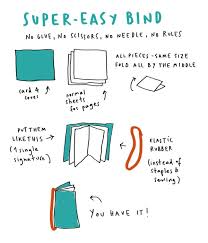 SUPER-EASY BIND
NO GLUE, NO SCISSORS, NO NEEDLE, NO RULES
ALL PIECES - SAME SIZE
FOLD ALL BY THE MIDDLE
card 4
covers
normal
sheets
for pages
PUT THEM
LIKE THIS →
(1 single
signature)
ELASTIC
RUBBER
(instead of
staples &
sewing)
YOU HAVE IT!